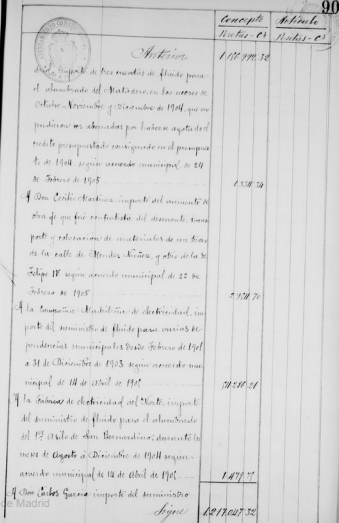 90
Concepto Artículo
Pesetas - Cs Pesetas - Cs
Anterior
importe de tres cuentas de fluido para
el alumbrado del Matadero, en los meses de
Octubre, Noviembre y Diciembre de 1904, que no
pudieron ser abonadas por haberse agotado el
credito presupuestado consignado en el presupues-
to de 1904, según acuerdo municipal de 24
de Febrero de 1905
A Don Cecilio Martinez importe del aumento de
obra de que fué contratista del desmonte, trans-
porte y colocacion de materiales de un trozo
de la calle de Mendez Nuñez, y otro de la de
Felipe IV según acuerdo municipal de 22 de
Febrero de 1905
A la Compañia Madrileña de electricidad, im-
porte del suministro de fluido para varias de-
pendencias municipales desde Febrero de 1901
a 31 de Diciembre de 1903 según acuerdo mu-
nicipal de 14 de Abril de 190
A la Fabrica de electricidad del Norte, importe
del suministro de fluido para el alumbrado
del 1er Asilo de San Bernardino, durante los
meses de Agosto á Diciembre de 1904 segun
acuerdo municipal de 14 de Abril de 190
A Don Carlos Garcia importe del suministro
Sigue 1.217.047.32
de Madrid